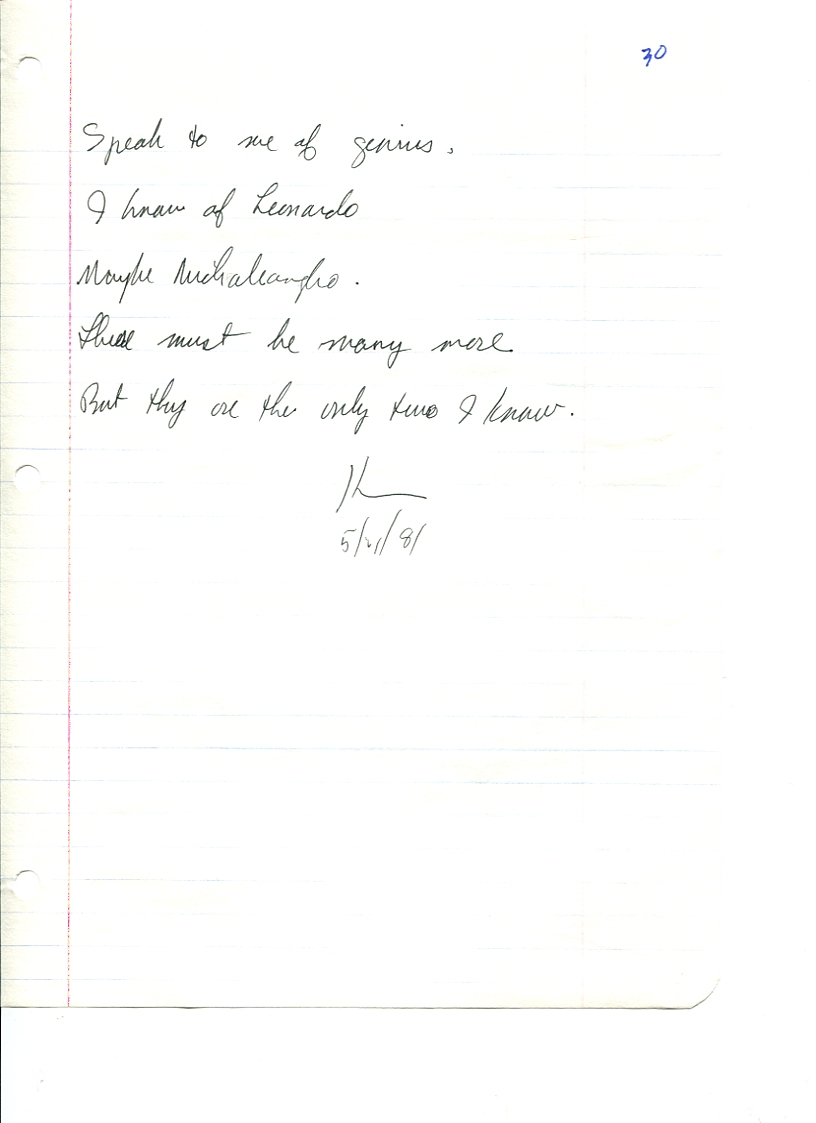 30
Speak to me of genius.
I know of Leonardo
Maybe Michaleangelo.
There must be many more
But they are the only two I know.
5/21/81